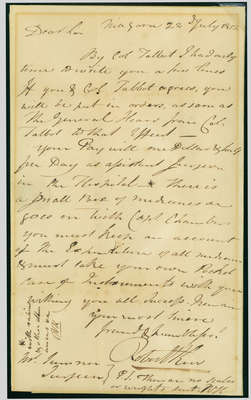 Niagara 22d July 1812
Dear Sir
By Col Talbot I had only
time to write you a few lines
If you & Col Talbot agrees, you
will be put in orders, as soon as
the General hears from Col
Talbot to that effect —
your Pay will one Dollar &
per Day as assistant Surgeon
in the Hospital — there is
a small Box of medicines
goes on with Capt Chambers
you must keep an account
of the Expenditure of all medicine
& must take your own Pocket
case of Instruments with you
wishing you all success I remain
your most sincere
friend & humble Sert
Robert Kerr
Mr.
Surgeon
P.S. There are no scales
or weights sent RK